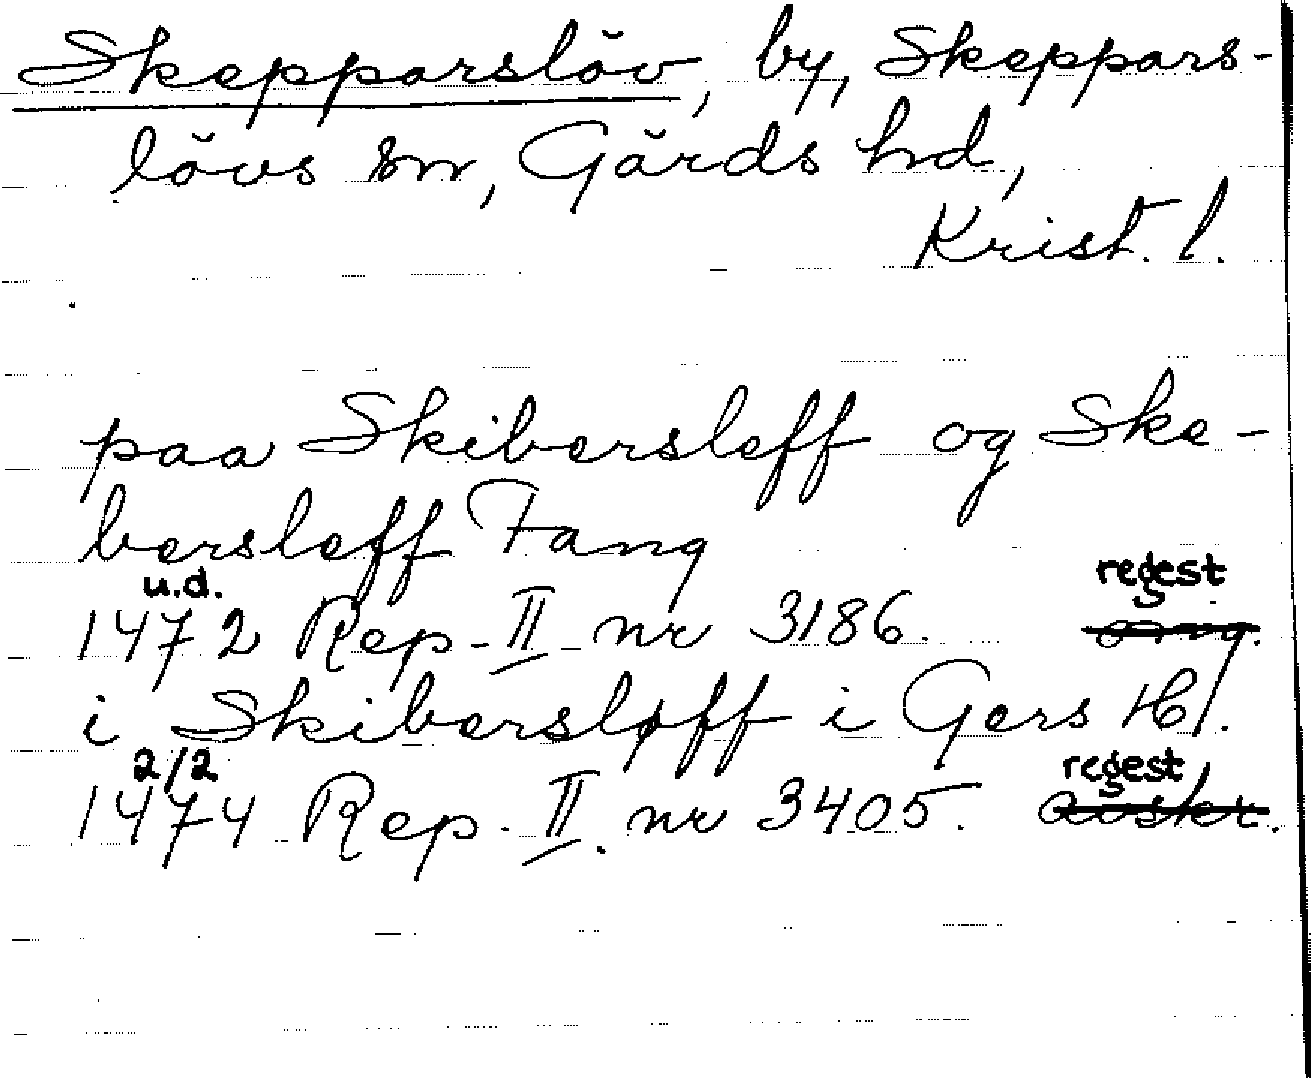 Skepparslöv, by, Skeppars-
lövs sn, Gärds hd,
Krist. l.
paa Skibersleff og Ske-
bersleff Fang
u.d. regest
1472 Rep. II nr 3186.
i Skibersløff i Gers H/.
2/2 regest
1474 Rep. II nr 3405. avskr.